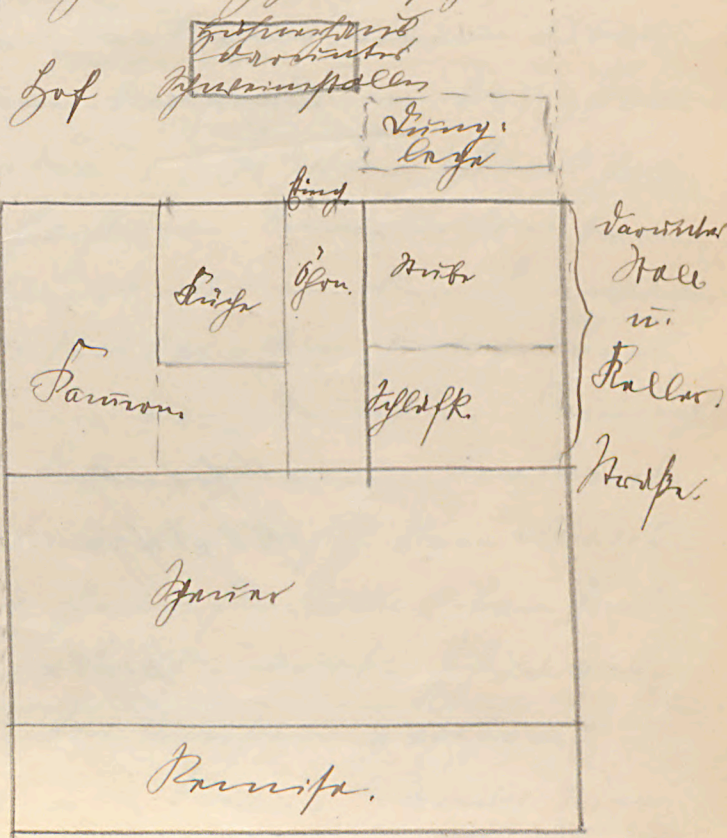 Hühnerhaus
darunter
Hof Schweinestallen
Dung-
lege
Eing.
Küche
Öhrn.
Stube
Kammern.
Schlafk.
darunter
Stall
u.
Keller.
Straße.
Scheuer
Remise.